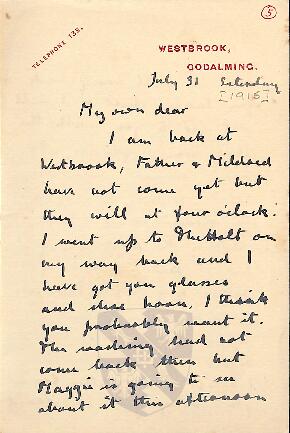 5
TELEPHONE 135.
WESTBROOK,
GODALMING.
July 31 Saturday
[1915]
My own dear
I am back at
Westbrook, Father & Mildred
have not come yet but
they will at four o'clock.
I went up to The Holt on
my way back and I
have got you glasses
and shoe horn, I think
you probably want it.
The washing had not
come back then but
Maggie is going to see
about it this afternoon